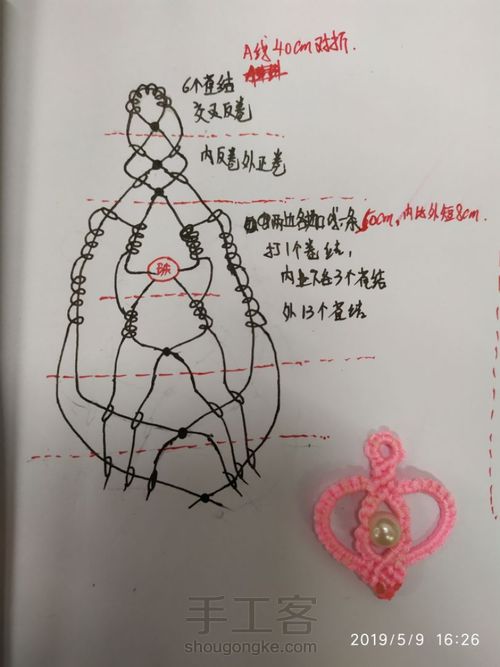 A线40cm对折.
6个雀结
交叉反卷
内反卷外正卷
两边各加口线一条 60cm,内比外短8cm.
打1个卷结,
内上下各3个雀结
外13个雀结
珠
手工客
shougongke.com
2019/5/9 16:26